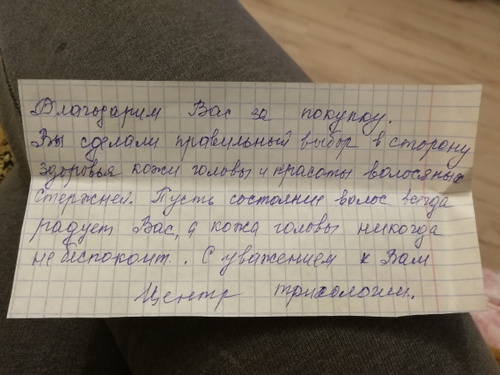 Благодарим Вас за покупку.
Вы сделали правильный выбор в сторону
здоровья кожи головы и красоты волосяных
стержней. Пусть состояние волос всегда
радует Вас, а кожа головы никогда
не беспокоит. С уважением к Вам
Центр трихологии.